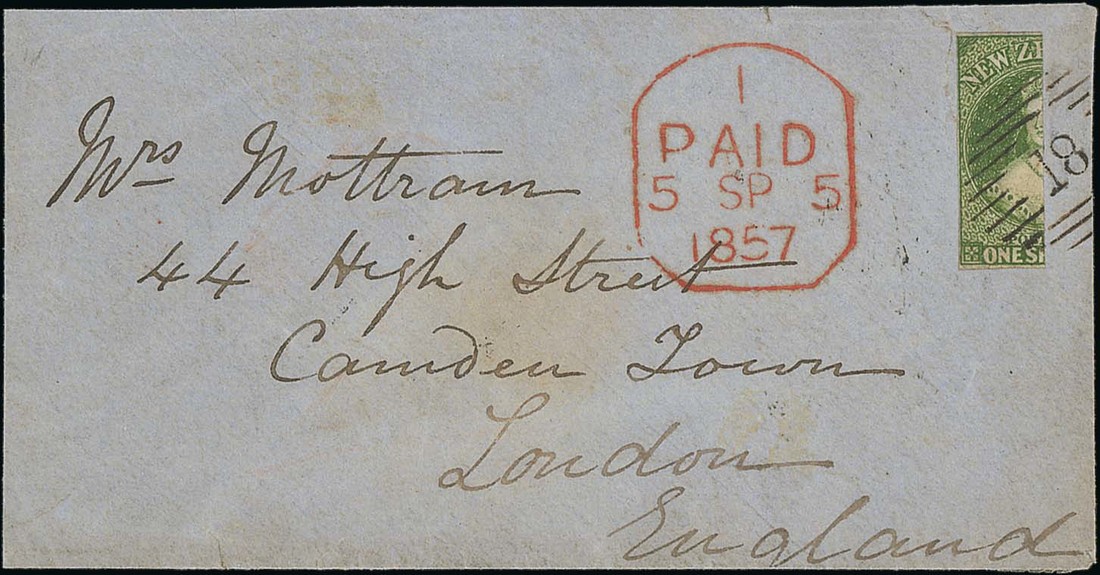 NEW ZE
18
ONE SH
1
PAID
5 SP 5
1857
Mrs Mottram
44 High Street
Camden Town
London
England